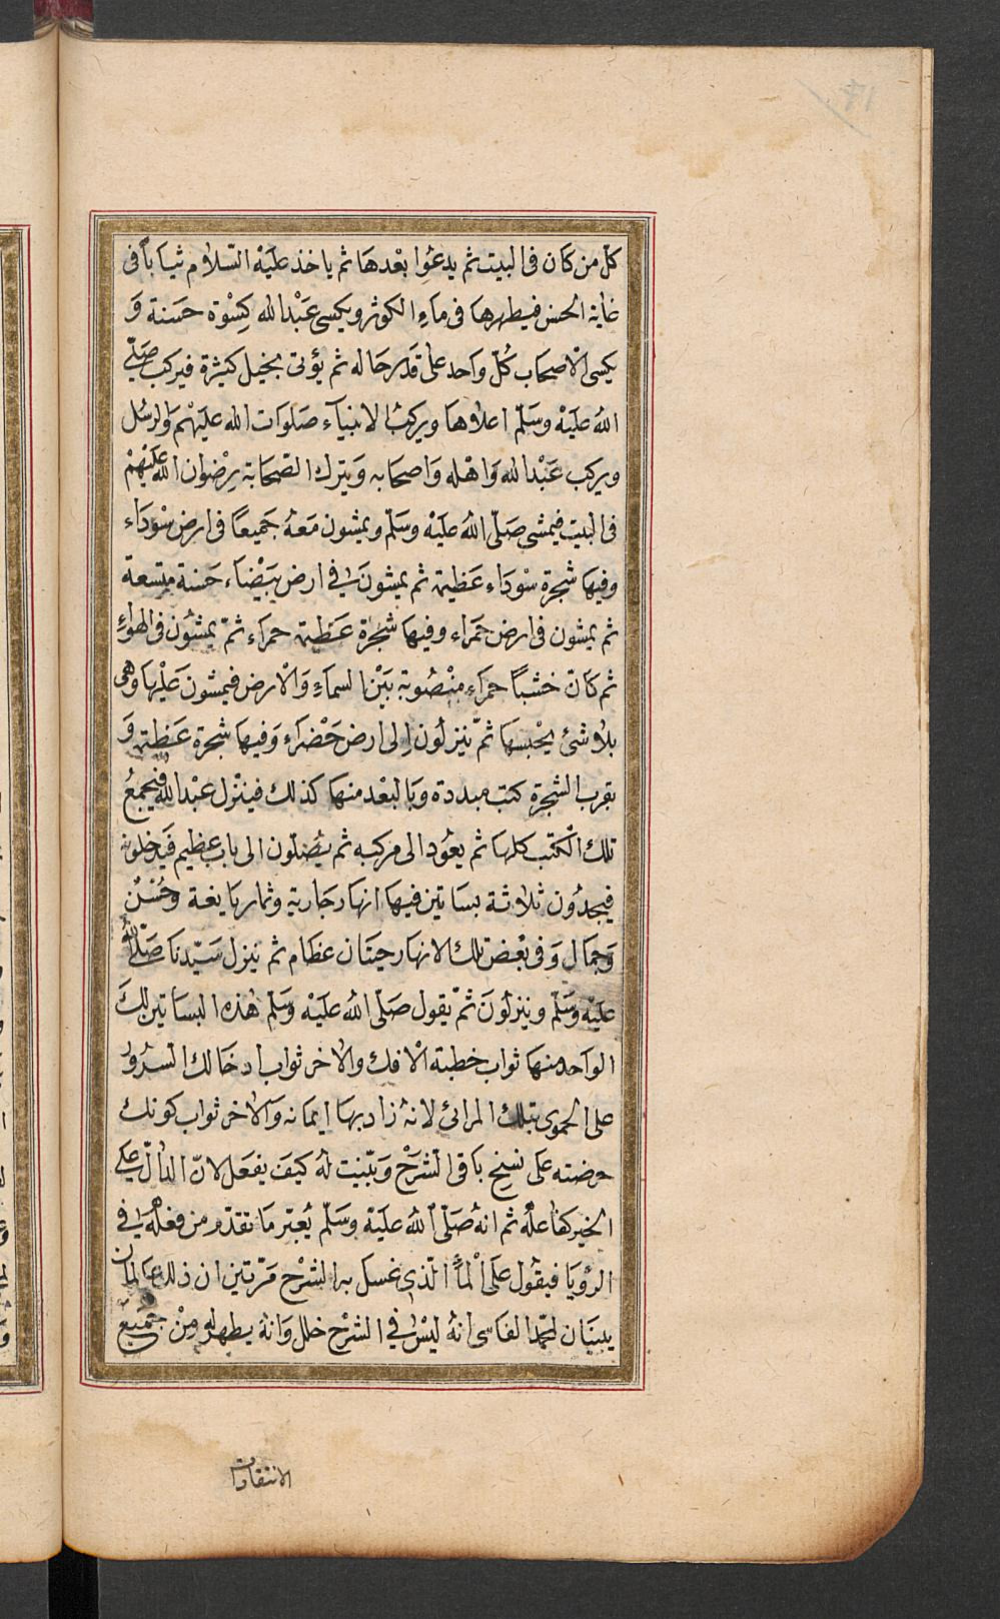 كل من كان فى البيت ثم يدعوا بعدها ثم ياخذ عليه السلام ثيابا فى
غاية الحسن فيطهرها فى ماء الكوثر ويكسى عبد الله كسوة حسنة و
يكسى الاصحاب كل واحد على قدر حاله ثم يؤتى بخيل كثيرة فيركب صلى
الله عليه وسلم اعلاها ويركب الانبيآء صلوات الله عليهم والرسل
ويركب عبد الله واهله واصحابه ويترك الصحابة رضوان الله عليهم
فى البيت فيمشى صلى الله عليه وسلم ويمشون معه جميعا فى ارض سوداء
وفيها شجرة سوداء عظيمة ثم يمشون فى ارض بيضاء حسنة متسعة
ثم يمشون فى ارض حمراء وفيها شجرة عظيمة حمراء ثم يمشون فى الهواء
ثم كانّ خشبا حمراء منصوبة بين السماء والارض فيمشون عليها وهى
بلا شئ يحبسها ثم ينزلون الى ارض خضراء وفيها شجرة عظيمة و
بقرب الشجرة كتب مبددة وبالبعد منها كذلك فينزل عبد الله فيجمع
تلك الكتب كلها ثم يعود الى مركبه ثم يصلون الى باب عظيم فيدخلونه
فيجدون ثلاثة بساتين فيها انهار جارية وثمار يانعة وحسن
وجمال وفى بعض تلك الانهار حيتان عظام ثم ينزل سيدنا صلى الله
عليه وسلم وينزلون ثم يقول صلى الله عليه وسلم هذه البساتين لك
الواحد منها ثواب خطبته الافك والاخر ثواب ادخالك السرور
على الحموى بتلك المرائى لانه زاد بها ايمانه والاخر ثواب كونك
حرضته على نسخ باقى الشرح وبينت له كيف يفعل لان الدال على
الخير كفاعله ثم انه صلى الله عليه وسلم يعبر ما تقدم من فعله فى
الرؤيا فيقول على الماء الذى غسل به الشرح مرتين ان ذلك
يبينان لمحمد الفاسى انه ليس فى الشرح خلل وانه يطهر له من جميع
الانتقادات